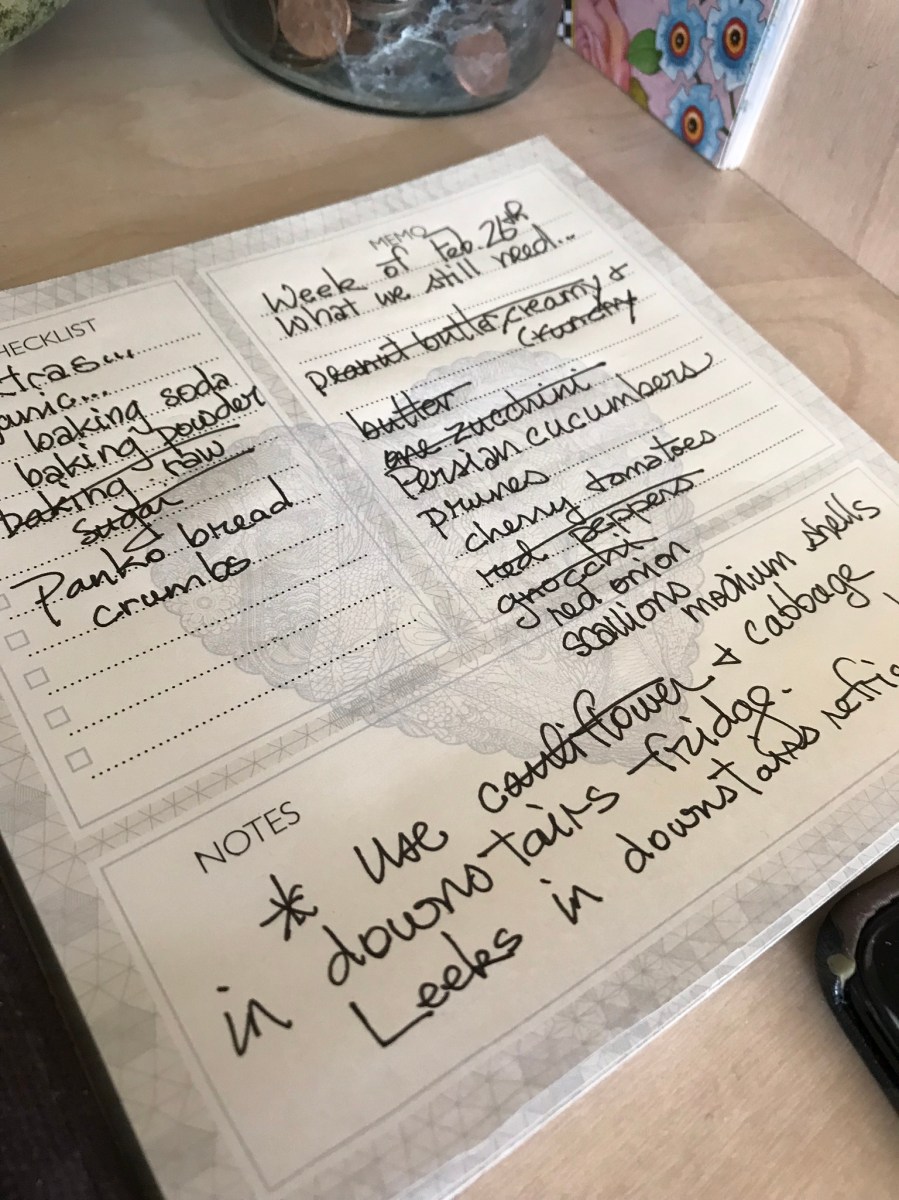 CHECKLIST
extras...
organic...
baking soda
baking powder
baking raw
sugar
Panko bread
crumbs
MEMO
Week of Feb. 26th
What we still need...
peanut butter, creamy &
crunchy
butter
one zucchini
Persian cucumbers
prunes
cherry tomatoes
red peppers
gnocchi
red onion
scallions medium shells
NOTES
* Use cauliflower & cabbage
in downstairs fridge.
Leeks in downstairs